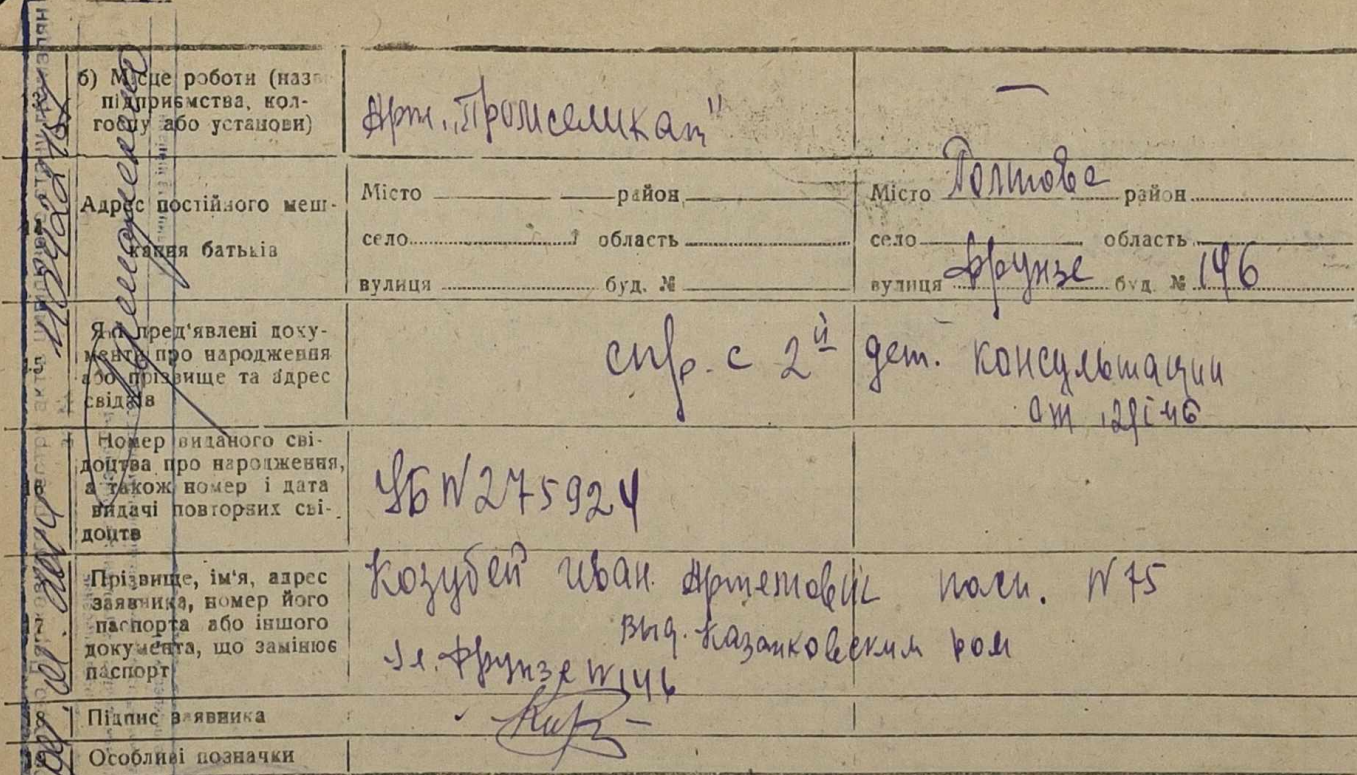 б) Місце роботи (назв
підприємства, кол-
госпу або установи)
Арт. „Промселикат"
—
Адрес постійного меш-
кання батьків
Місто район
село область
вулиця буд. №
Місто Полтава район
село область
вулиця Фрунзе буд. № 146
15
Які пред'явлені доку-
менти про народження
або прізвище та адрес
свідків
спр. с 2й дет. консультации
от
16
Номер виданого сві-
доцтва про народження,
а також номер і дата
видачі повторних сві-
доцтв
УБ N 275924
17
Прізвище, ім'я, адрес
заявника, номер його
паспорта або іншого
документа, що замінює
паспорт
Козубей Иван Артемович N 75
выд. Казанковским ром
ул. Фрунзе N 146
18
Підпис заявника
19
Особливі позначки